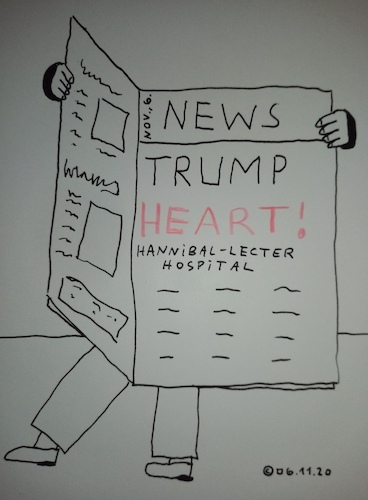 NOV., 6.
NEWS
TRUMP
HEART!
HANNiBAL-LECTER
HOSPiTAL
06.11.20